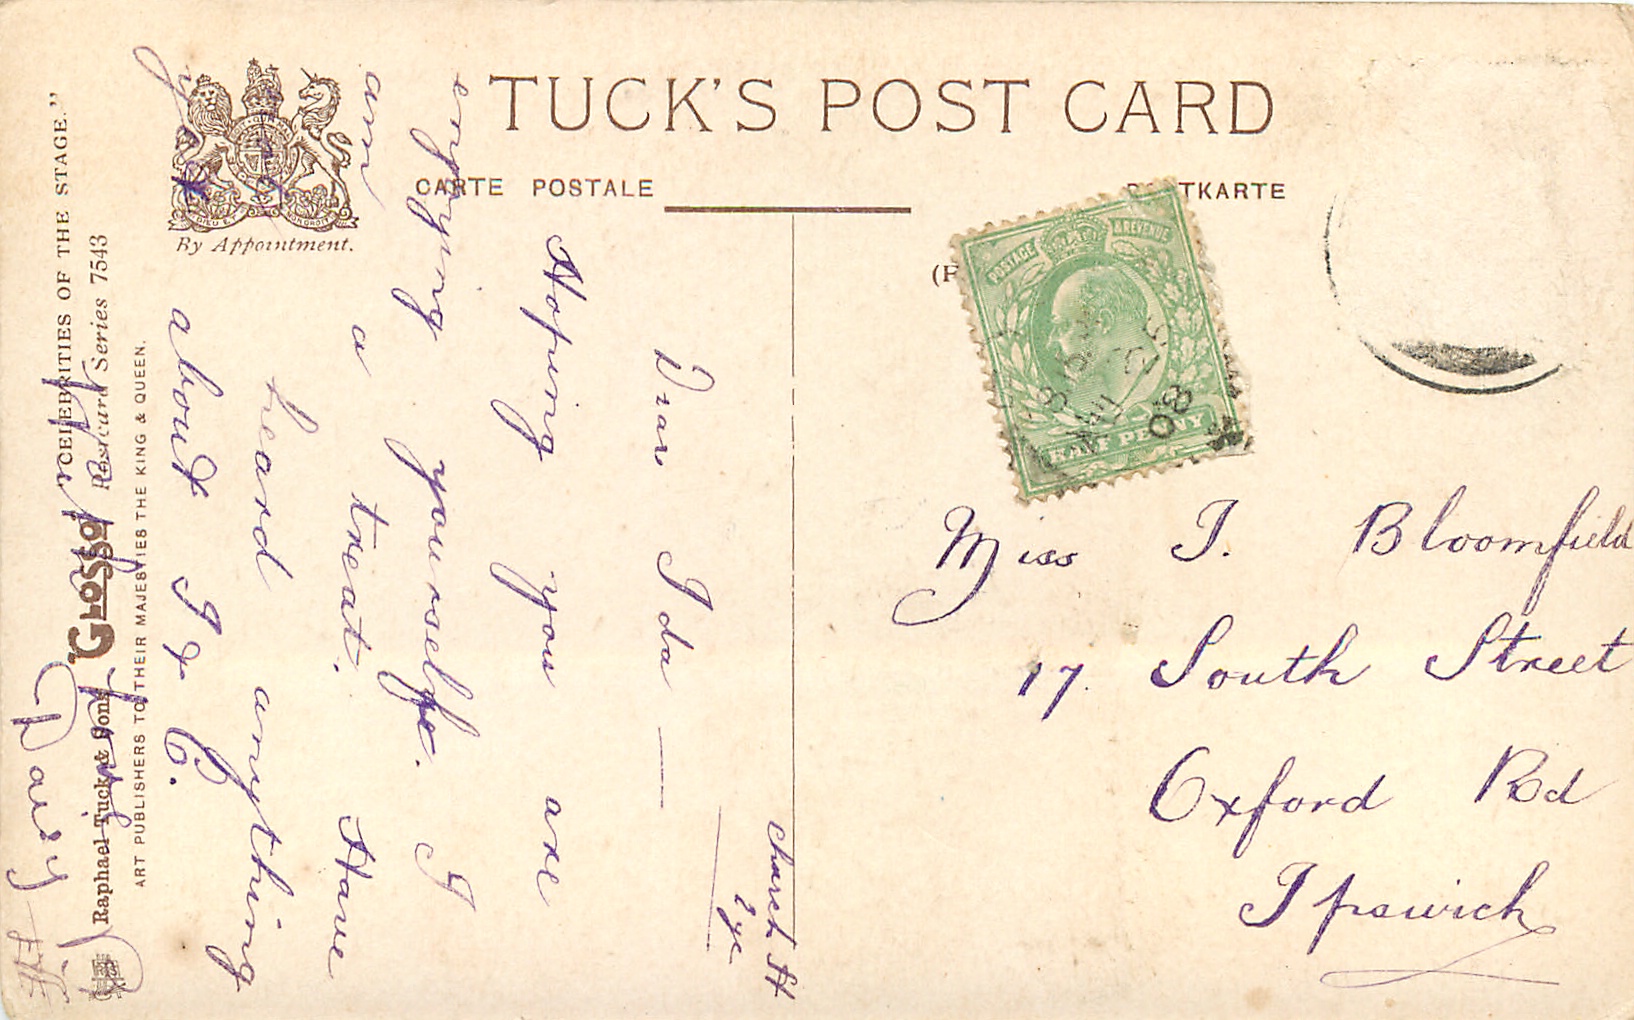 TUCK'S POST CARD
CARTE POSTALE
TKARTE
By Appointment.
(F
POSTAGE & REVENUE
HALF PENNY
8.15
08
Miss I. Bloomfield
17. South Street
Oxford Rd
Ipswich
Church St
Eye
Dear Ida —
Hoping you are
enjoying yourself. I
am a treat. Have
you heard anything
about I & C.
Daisy
"CELEBRITIES OF THE STAGE."
Postcard Series 7543
Raphael Tuck & Sons' GLOSSO
ART PUBLISHERS TO THEIR MAJESTIES THE KING & QUEEN.